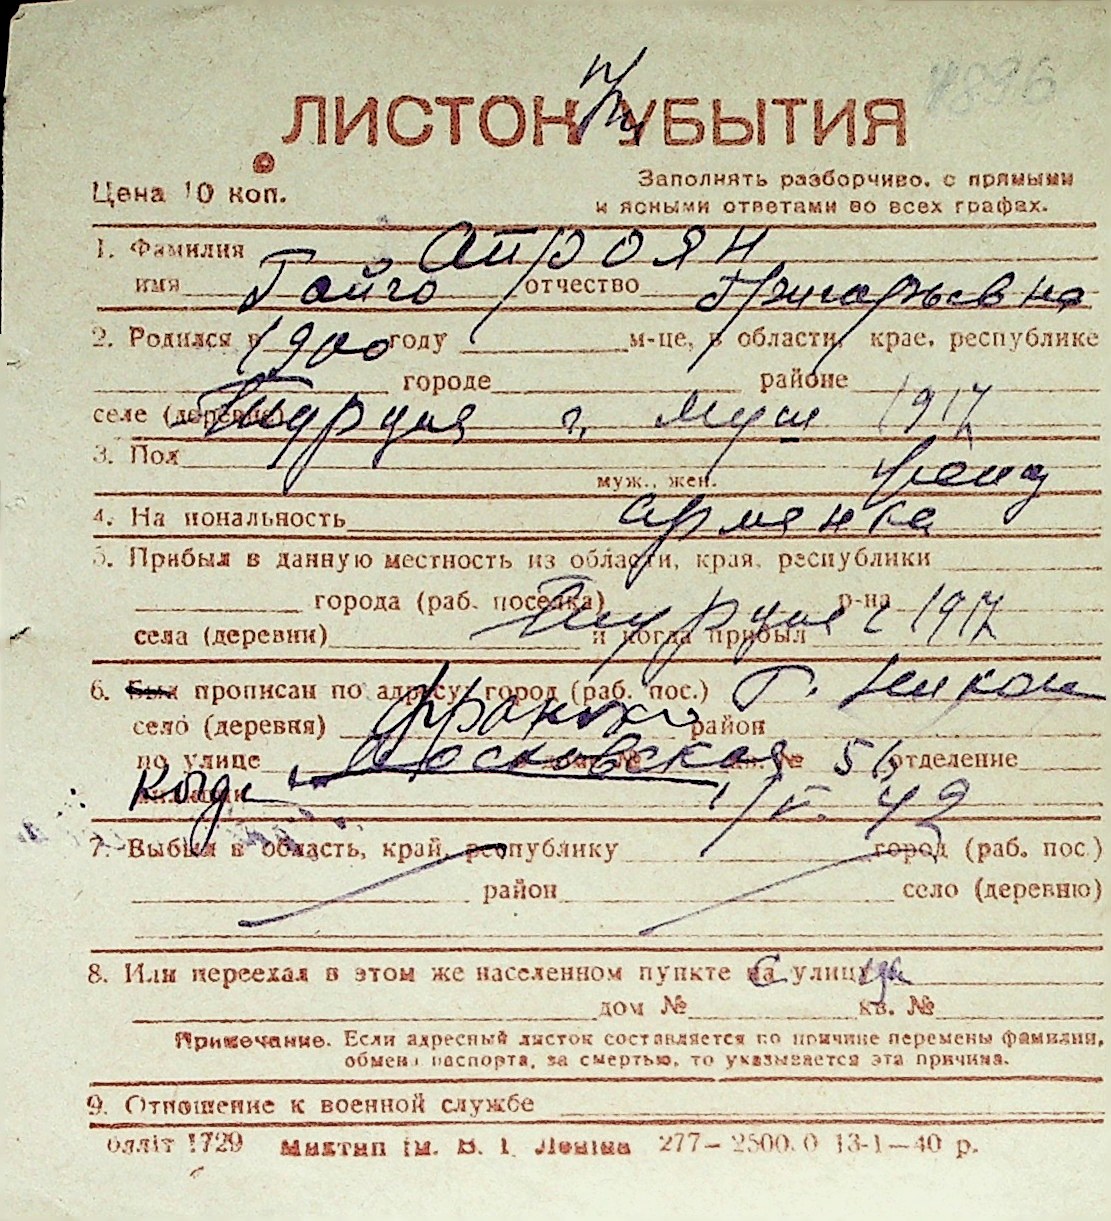 4896
ЛИСТОК УБЫТИЯ
Цена 10 коп.
Заполнять разборчиво, с прямыми
и ясными ответами во всех графах.
1. Фамилия Атроян
имя Гайго отчество Григорьевна
2. Родился в 1900 году м-це, в области, крае, республике
городе районе
селе (деревне) Турция г. Муш 1917
3. Пол муж., жен. жен
4. Национальность армянка
5. Прибыл в данную местность из области, края, республики
города (раб. поселка) р-на
села (деревни) Турция и когда прибыл с 1917
6. Был прописан по адресу: город (раб. пос.) г.
село (деревня) район
по улице Московская № 51 отделение
милиции Когда 1/V. 49
7. Выбыл в область, край, республику город (раб. пос.)
район село (деревню)
8. Или переехал в этом же населенном пункте на улицу
дом № кв. №
Примечание. Если адресный листок составляется по причине перемены фамилии,
обмена паспорта, за смертью, то указывается эта причина.
9. Отношение к военной службе
блліт 1729 Миктип ім. В. І. Леніна 277—2500.0 13-1—40 р.